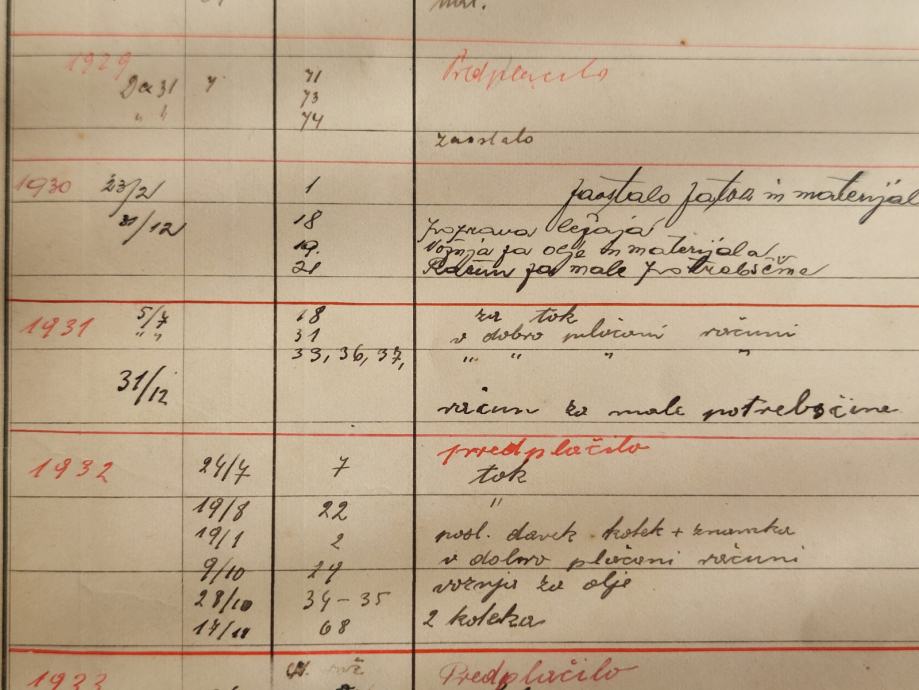 1929 Predplačilo
Dec 31 7 71
" " 73
74
zaostalo
1930 23/2 1 zaostalo za tok in materijal
31/12 18 poprava ležaja
19. vožnja za olje in materijala
21 Račun za male potrebščine
1931 5/7 18 za tok
" " 31 v dobro plačani računi
33, 36, 37, " " " "
31/12 račun za male potrebščine
predplačilo
1932 24/7 7 tok
19/8 22 "
19/1 2 posl. davek kolek + znamka
9/10 24 v dobro plačani računi
28/10 34-35 voznja za olje
17/11 68 2 koleka
1933 Predplačilo